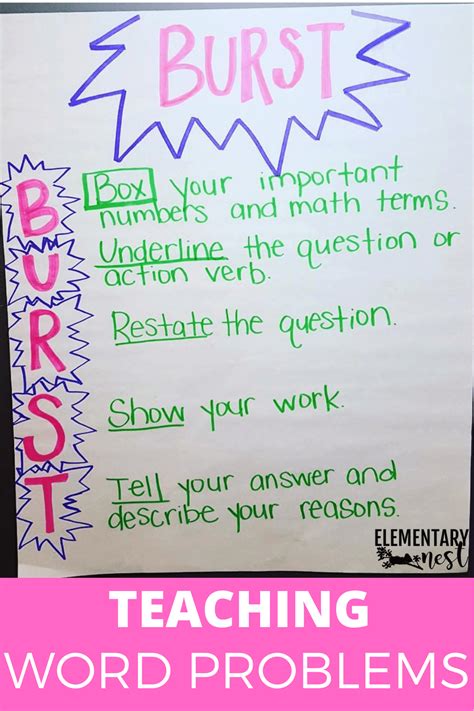 BURST
B
Box your important
numbers and math terms.
U
Underline the question or
action verb.
R
Restate the question.
S
Show your work.
T
Tell your answer and
describe your reasons.
ELEMENTARY
nest
TEACHING
WORD PROBLEMS